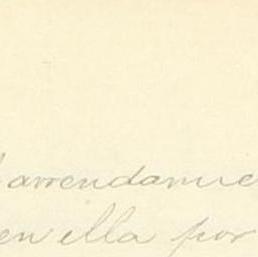 arrendamie
en ella por